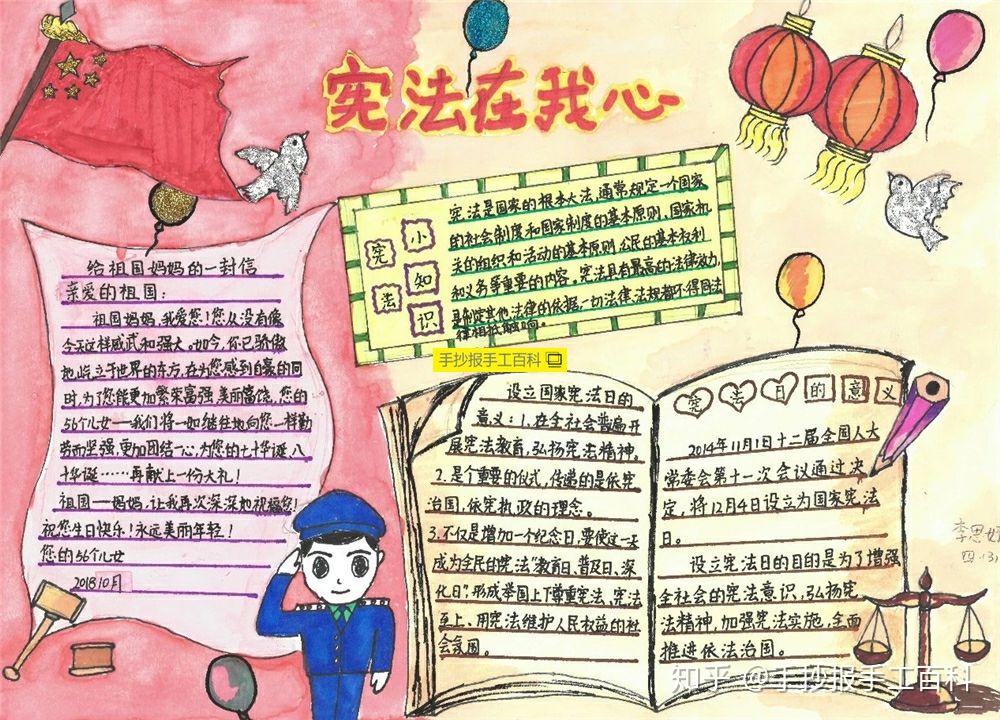 宪法在我心
给祖国妈妈的一封信
亲爱的祖国：
祖国妈妈，我爱您！您从没有像
今天这样威武和强大。如今，你已骄傲
地屹立于世界的东方，在为您感到自豪的同
时，为了您能更加繁荣富强，美丽富饶，您的
56个儿女——我们将一如继往地向您一样勤
劳而坚强，更加团结一心，为您的七十华诞、八
十华诞……再献上一份大礼！
祖国——妈妈，让我再次深深地祝福您！
祝您生日快乐！永远美丽年轻！
您的56个儿女
2018.10月
宪法
小知识
宪法是国家的根本大法，通常规定一个国家
的社会制度和国家制度的基本原则，国家机
关的组织和活动的基本原则，公民的基本权利
和义务等重要的内容。宪法具有最高的法律效力，
是制定其他法律的依据，一切法律、法规都不得同法
律相抵触。
手抄报手工百科
设立国家宪法日的
意义：1.在全社会普遍开
展宪法教育，弘扬宪法精神。
2.是个重要的仪式，传递的是依宪
治国，依宪执政的理念。
3.不仅是增加一个纪念日，要使这一天
成为全民的宪法“教育日、普及日、深
化日”，形成举国上下尊重宪法、宪法
至上、用宪法维护人民权益的社
会氛围。
宪法日的意义
2014年11月1日十二届全国人大
常委会第十一次会议通过决
定，将12月4日设立为国家宪法
日。
设立宪法日的目的是为了增强
全社会的宪法意识，弘扬宪
法精神，加强宪法实施，全面
推进依法治国。
李思
四（3）
知乎 @手抄报手工百科